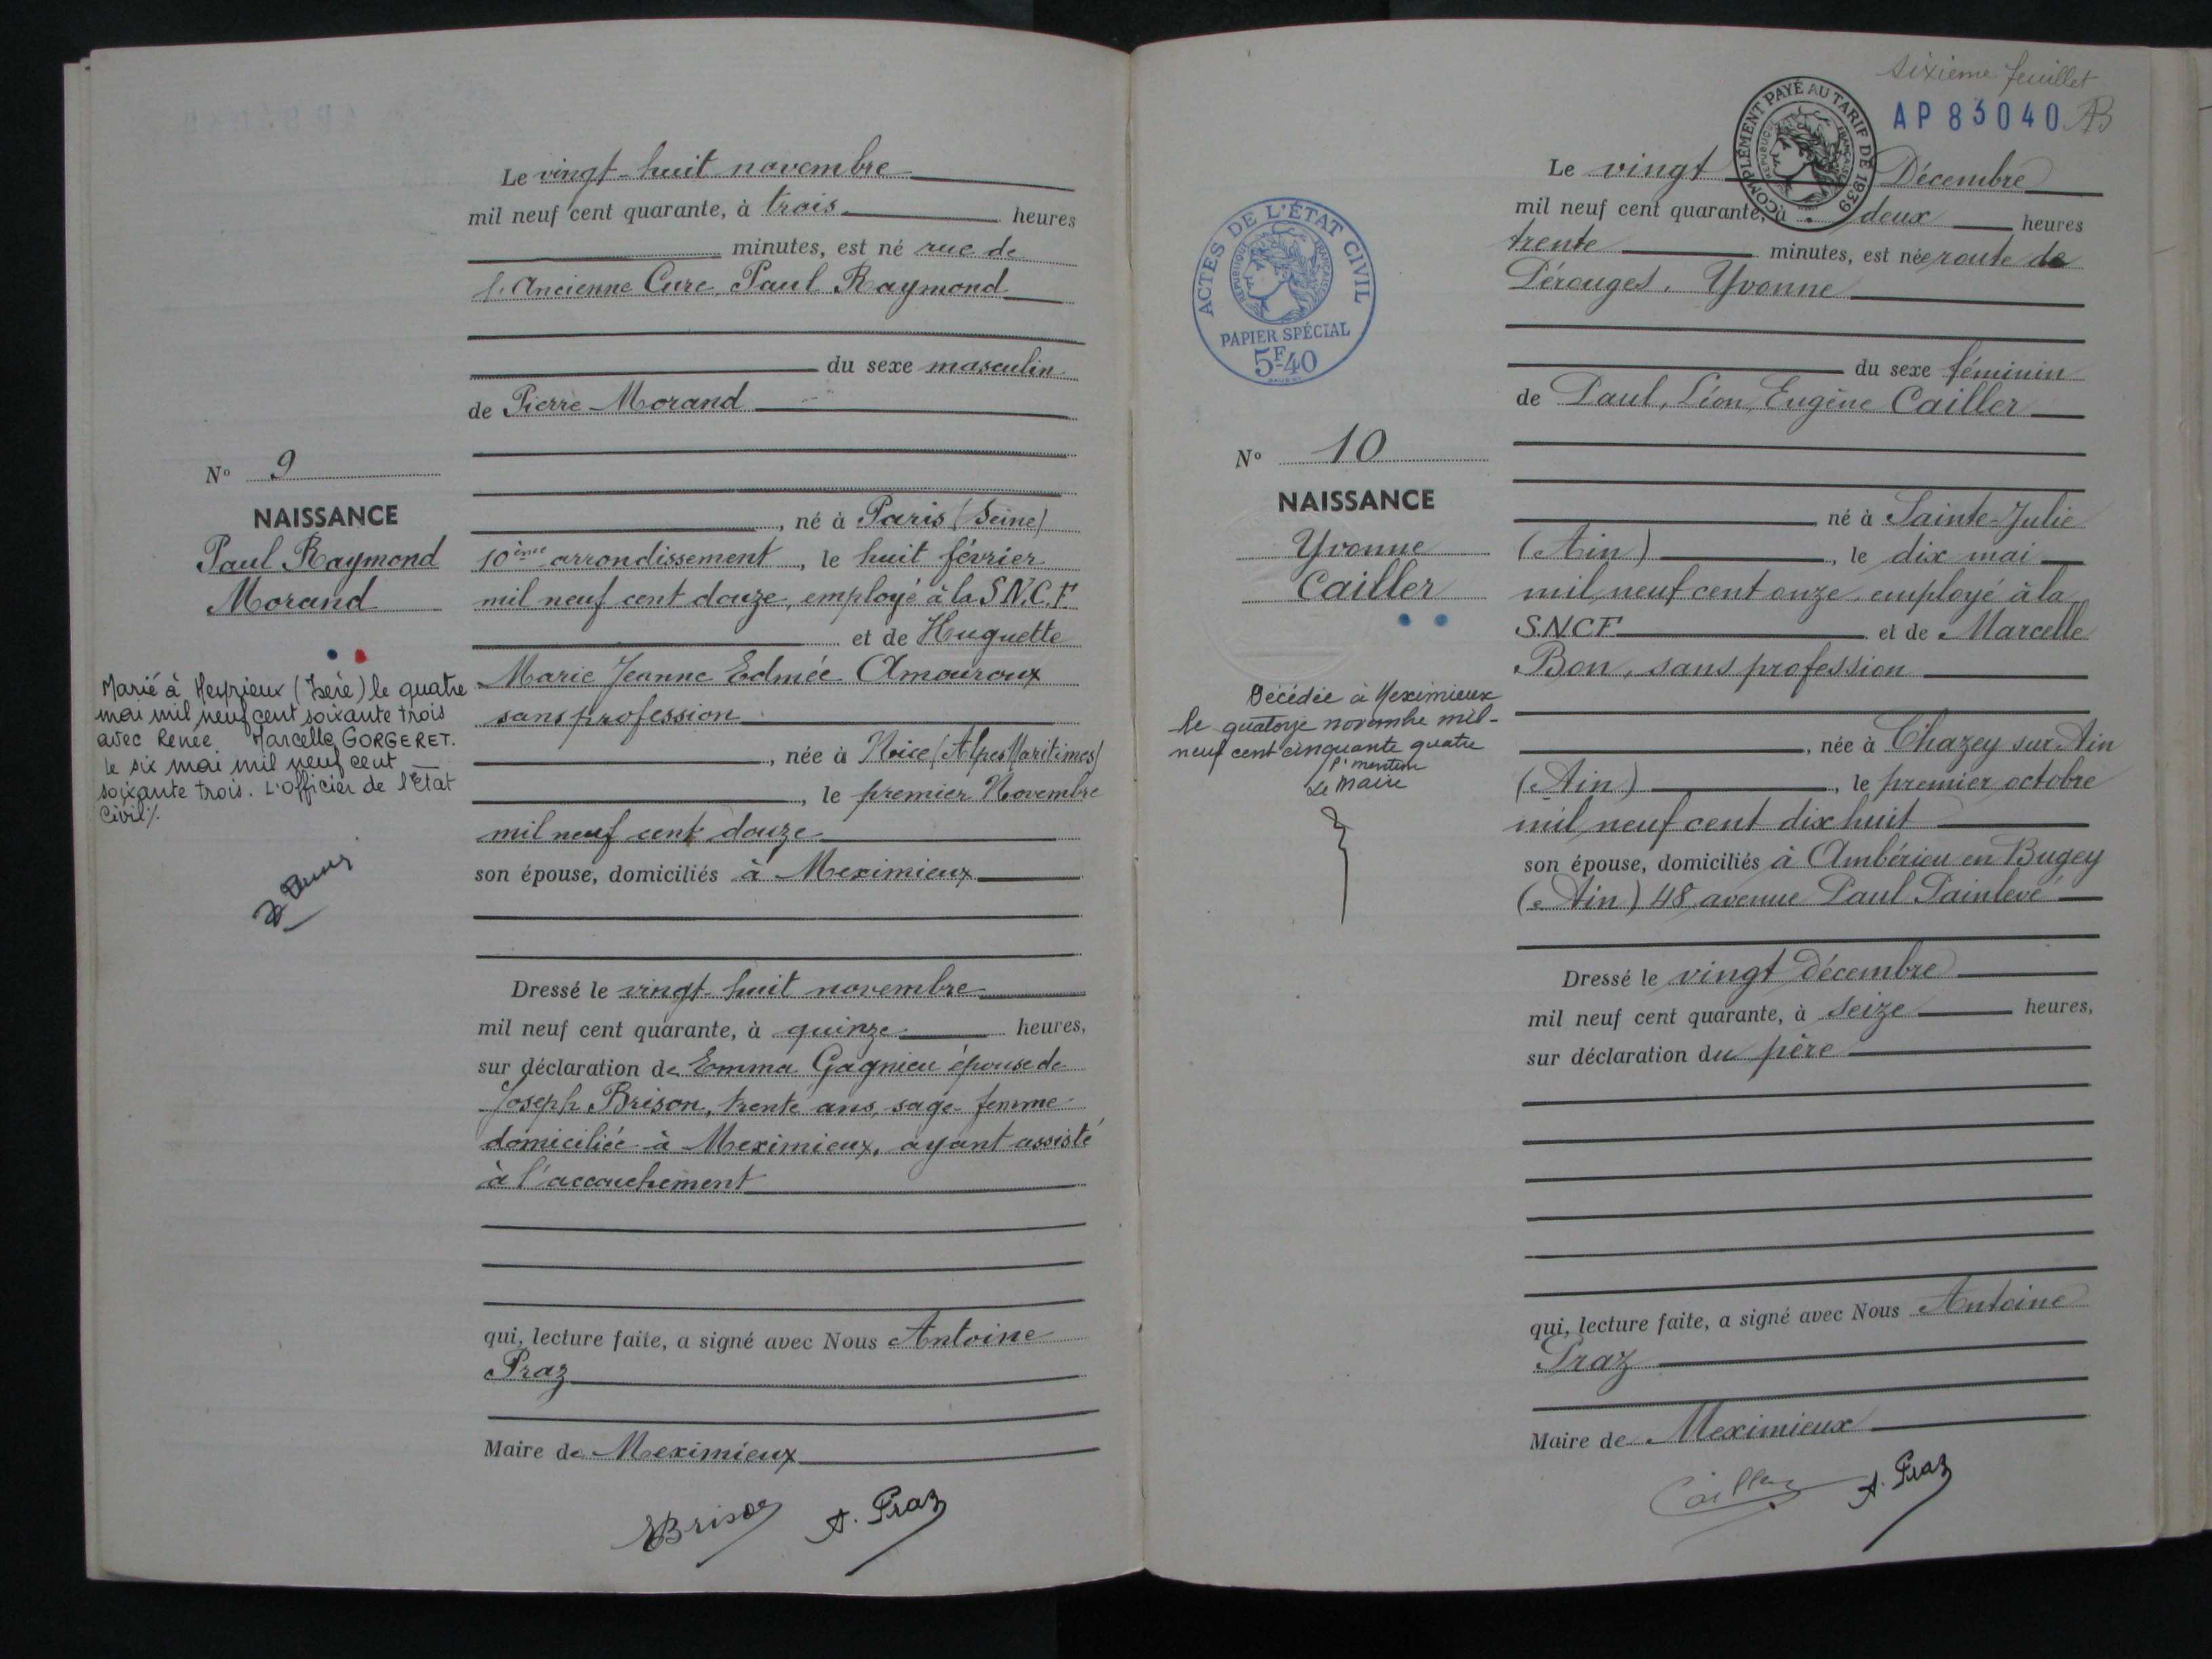 Le vingt-huit novembre
mil neuf cent quarante, à trois heures
minutes, est né rue de
l'Ancienne Cure, Paul Raymond
du sexe masculin
de Pierre Morand
N° 9
NAISSANCE
Paul Raymond
Morand
, né à Paris (Seine)
10ème arrondissement, le huit février
mil neuf cent douze, employé à la S.N.C.F.
et de Huguette
Marie Jeanne Edmée Amouroux
sans profession
, née à Nice (Alpes Maritimes)
, le premier Novembre
mil neuf cent douze
son épouse, domiciliés à Meximieux
Marié à Heyrieux (Isère) le quatre
mai mil neuf cent soixante trois
avec Renée Marcelle GORGERET.
le six mai mil neuf cent
soixante trois. L'officier de l'Etat
Civil %.
Dressé le vingt-huit novembre
mil neuf cent quarante, à quinze heures,
sur déclaration de Emma Gagnieu épouse de
Joseph Brison, trente ans, sage-femme
domiciliée à Meximieux, ayant assisté
à l'accouchement
qui, lecture faite, a signé avec Nous Antoine
Praz
Maire de Meximieux
EBrison A. Praz
sixième feuillet
AP 83040
COMPLÉMENT PAYÉ AU TARIF DE 1939
REPUBLIQUE FRANÇAISE
ACTES DE L'ÉTAT CIVIL
REPUBLIQUE FRANÇAISE
PAPIER SPÉCIAL
5F40
Le vingt Décembre
mil neuf cent quarante, à deux heures
trente minutes, est née route de
Pérouges, Yvonne
du sexe féminin
de Paul, Léon, Eugène Cailler
N° 10
NAISSANCE
Yvonne
Cailler
né à Sainte-Julie
(Ain), le dix mai
mil neuf cent onze employé à la
S.N.C.F. et de Marcelle
Bon, sans profession
, née à Chazey sur Ain
(Ain), le premier octobre
mil neuf cent dix huit
son épouse, domiciliés à Ambérieu en Bugey
(Ain) 48 avenue Paul Painlevé
Décédée à Meximieux
le quatorze novembre mil-
neuf cent cinquante quatre
Pr mention
Le Maire
Dressé le vingt Décembre
mil neuf cent quarante, à seize heures,
sur déclaration du père
qui, lecture faite, a signé avec Nous Antoine
Praz
Maire de Meximieux
Cailler A. Praz